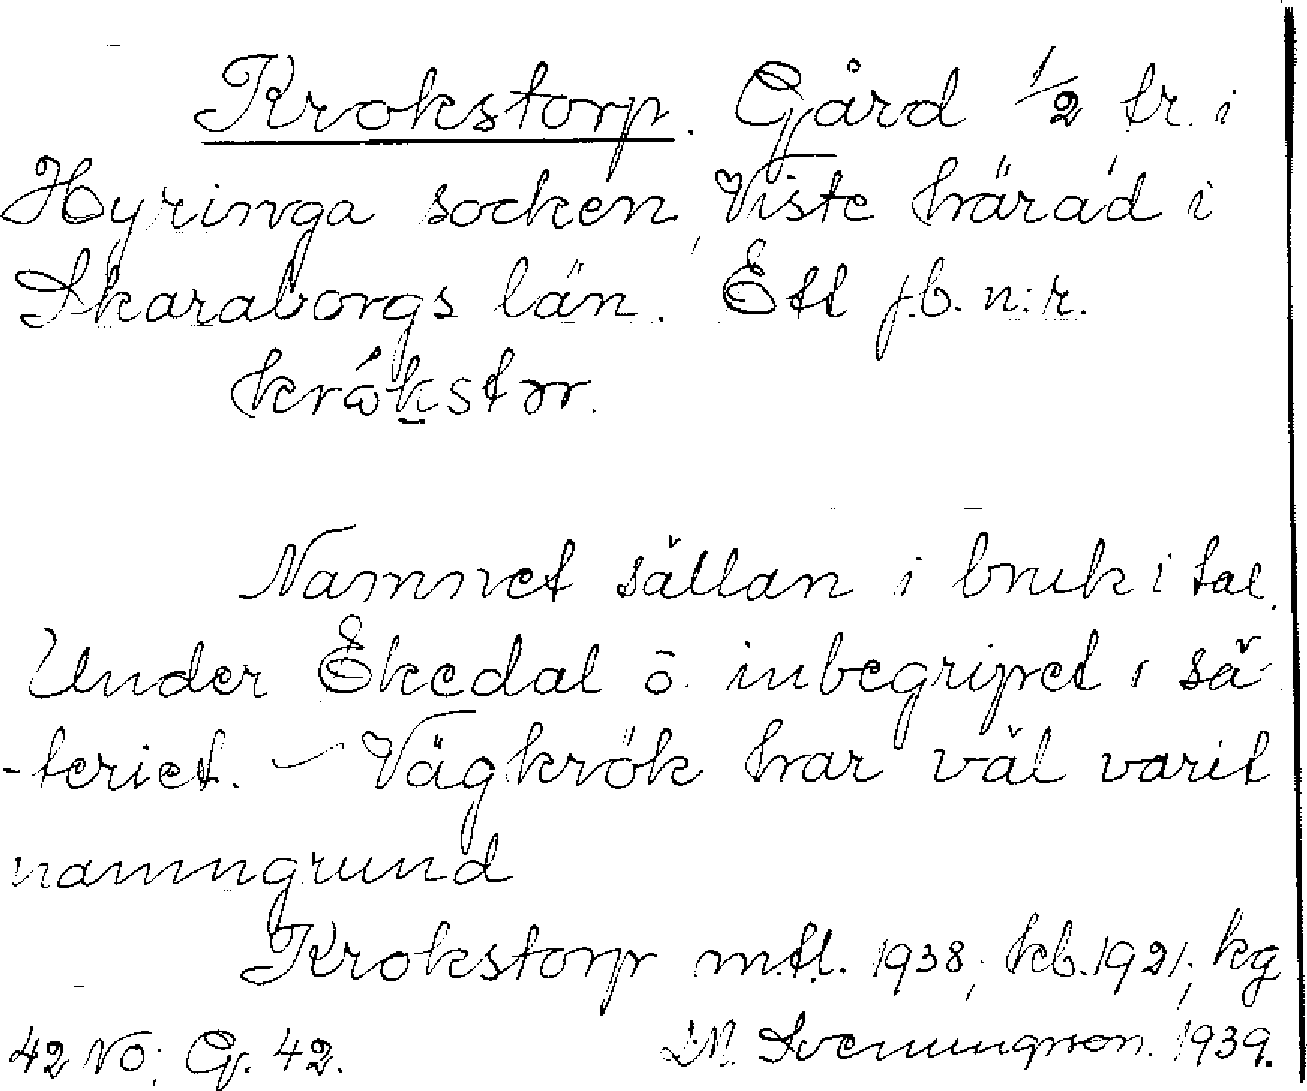 Krokstorp. Gård 1/2 fr. i
Hyringa socken, Viste härad i
Skaraborgs län. Ett j.b. n:r.
krókstor.
Namnet sällan i bruk i tal.
Under Ekedal ö. inbegripet i sä-
-teriet. - Vägkrök har väl varit
namngrund
Krokstorp mtl. 1938; kb. 1921; kg
42 NO; G. 42. Svenungsson. 1939.